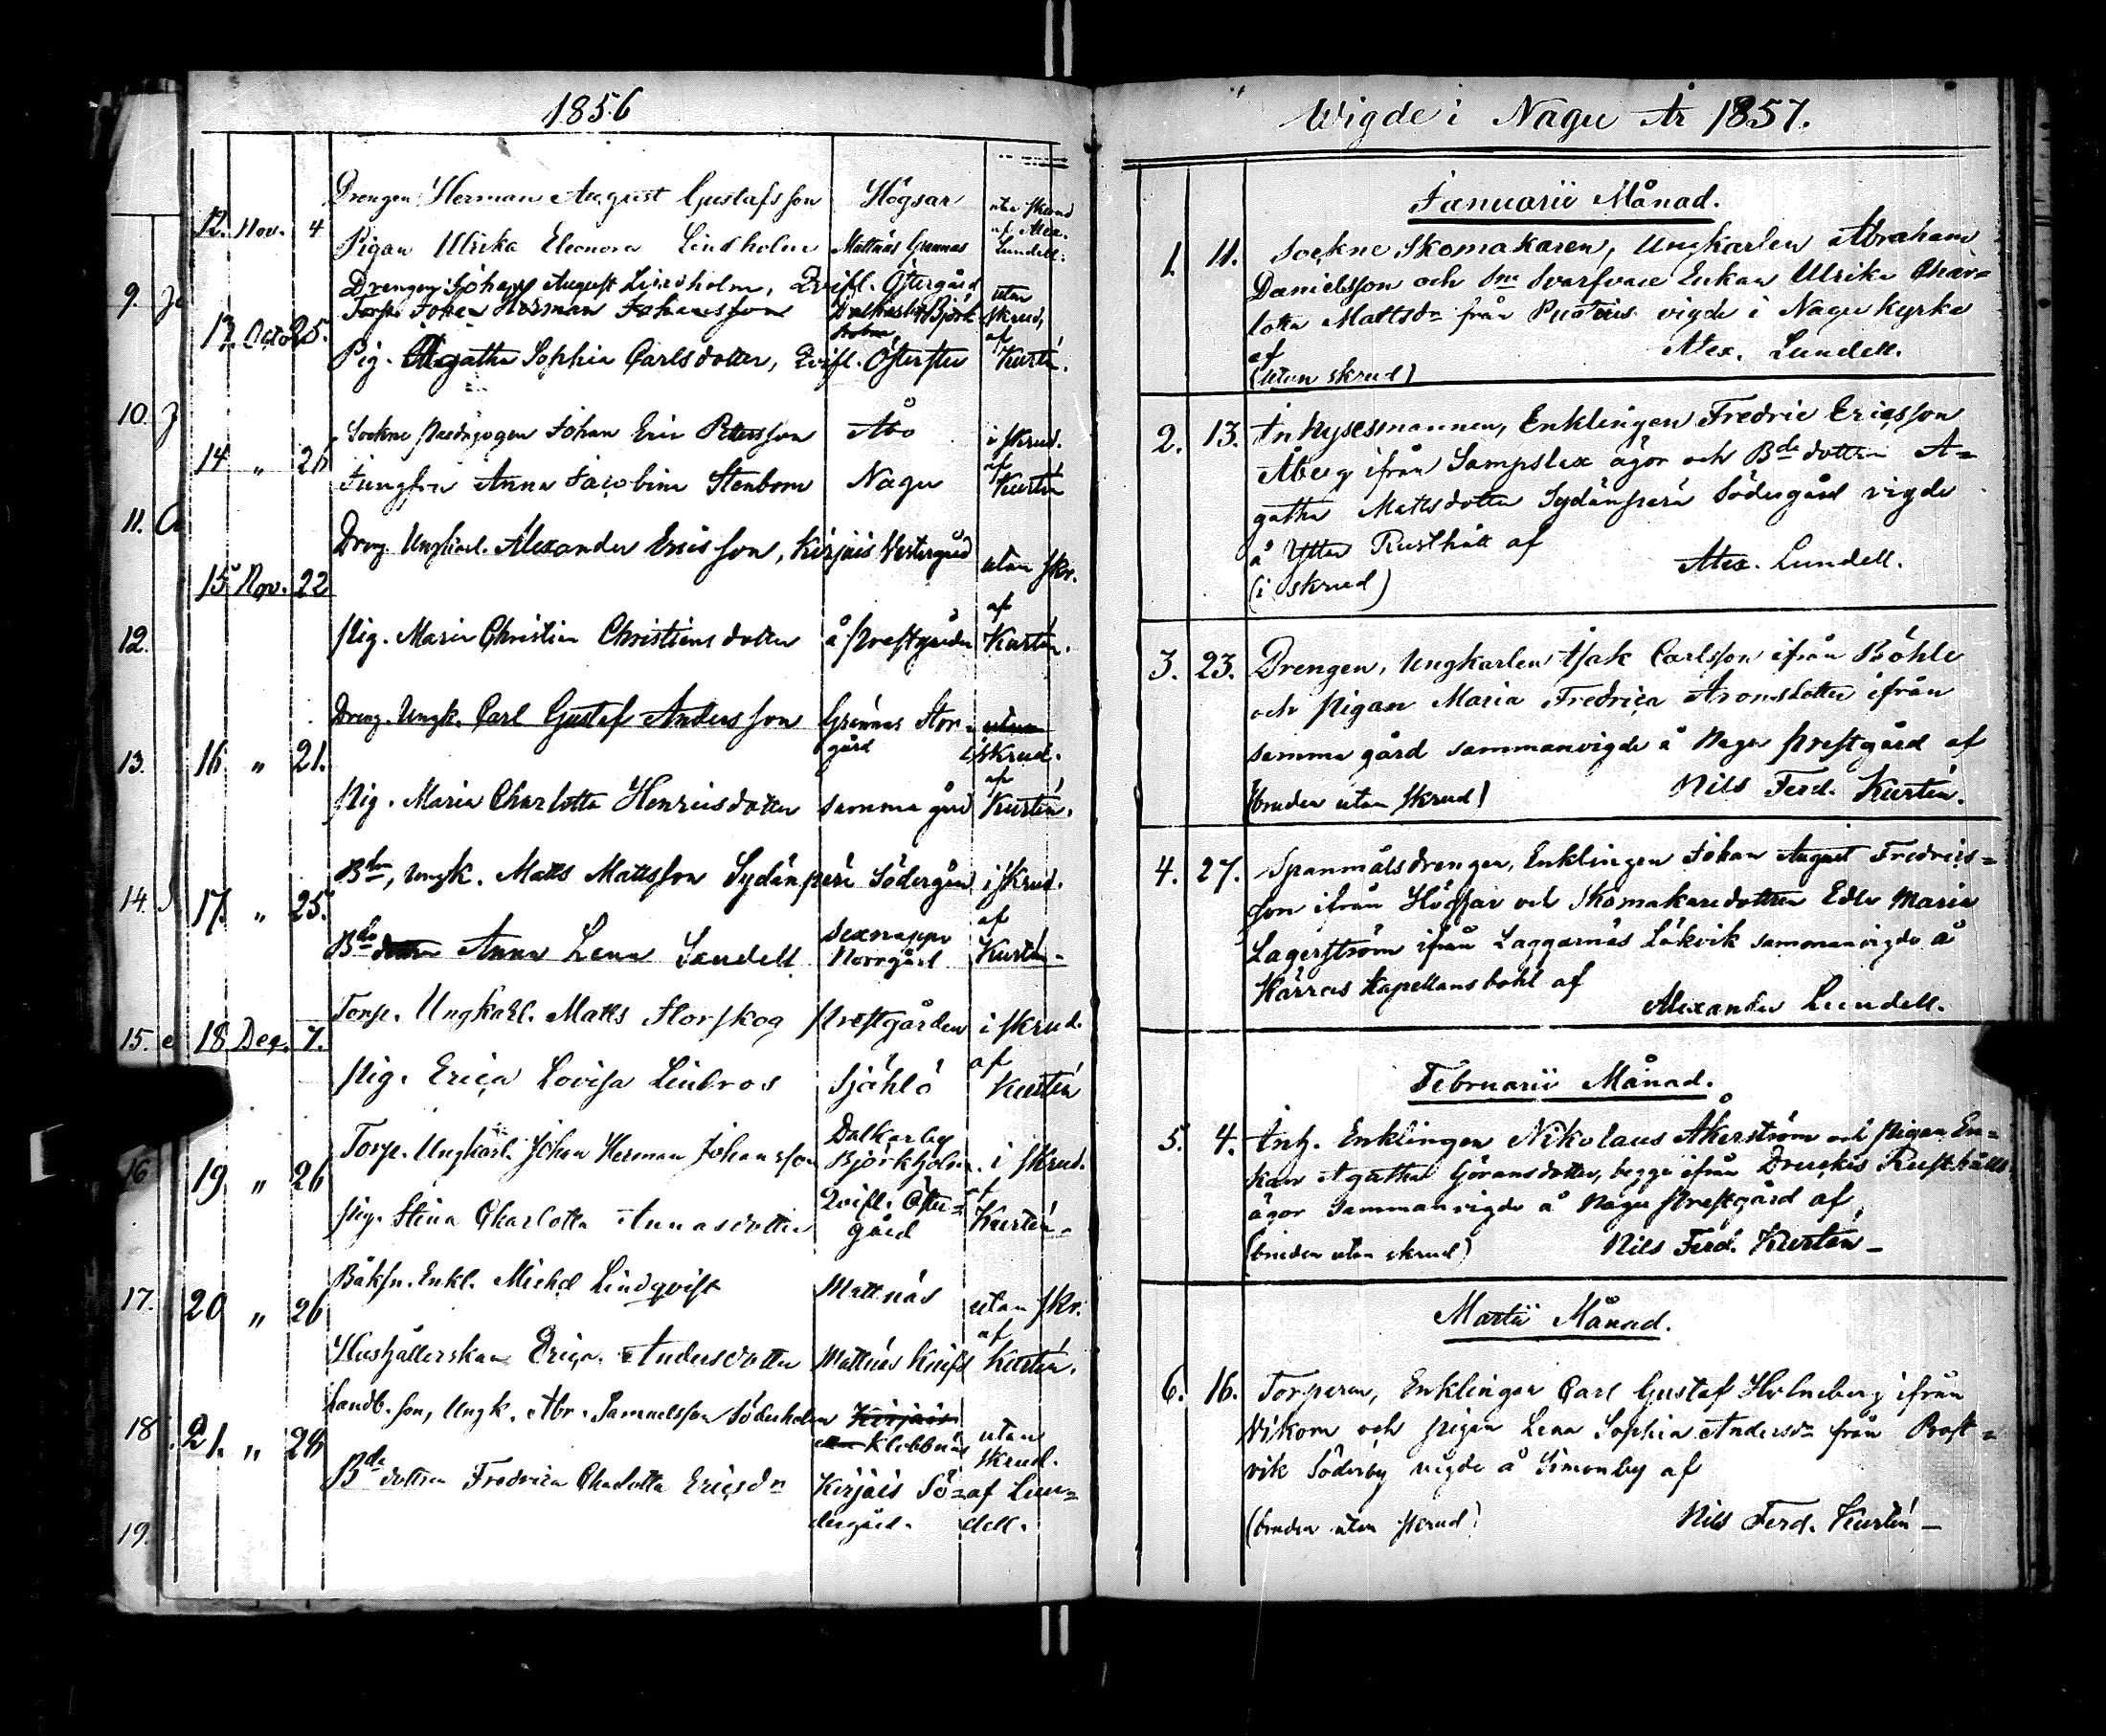 1856
Drengen Herman August Gustafsson Högsar utan skrud
12. Nov. 4 af Alex.
Pigan Ulrika Eleonora Lindholm Mattnäs Grannas Lundell.
Drengen Johan August Lindholm, Qvifl. Östergård
Torp. Johan Herman Johansson Dalkarby Björkholm utan skrud,
13. Octob. 25. af
Pig. Agatha Sophia Carlsdotter, Qvifl. Östergård Kurtén.
Sockne Pædagogen Johan Eric Petersson Åbo i skrud.
14 " 26 af
Jungfru Anna Jacobina Stenbom Nagu Kurtén
Dreng. Ungkarl. Alexander Ericsson, Kirjais Vestergård utan skr.
15 Nov. 22 af
Pig. Maria Christina Christiansdotter å Prestgården Kurtén.
Dreng. Ungk. Carl Gustaf Andersson Grännas Stor- utan
gård i skrud.
16 " 21. af
Pig. Maria Charlotta Henricsdotter samma gård Kurtén.
Bdn, Ungk. Matts Mattsson Sydänperä Södergård i skrud.
17. " 25. af
Bde dotter Anna Lena Sandell Sexnappa Norrgård Kurtén
Torp. Ungkarl. Matts Storskog Prestgården i skrud.
18 Dec. 7. af
Pig. Erica Lovisa Lindros Sjählö Kurtén
Torp. Ungkarl. Johan Herman Johansson Dalkarby Björkholm. i skrud.
19 " 26 af
Pig. Stina Charlotta Annasdotter Qvifl. Öster=
gård Kurtén
Båksn. Enkl. Michel Lindqvist Mattnäs utan skr.
20 " 26 af
Hushållerskan Erica Andersdotter Mattnäs Knifs Kurtén.
Landb. son, Ungk. Abr. Samuelsson Söderholm Kirjais
21. " 28 Klobbnäs utan skrud.
Bde dottren Fredrica Charlotta Ericsdr Kirjais Sö= af Lun=
dergård. dell.
9.
10.
11.
12.
13.
14.
15.
16
17.
18
19.
Wigde i Nagu År 1857.
Januarii Månad.
1. 11. Sockne Skomakaren, Ungkarlen Abraham
Danielsson och Svarfvare Enkan Ulrika Char=
lotta Mattsdr från vigde i Nagu Kyrka
af Alex. Lundell.
(utan skrud)
2. 13. Inhysesmannen, Enklingen Fredric Ericsson
Åberg ifrån Sampslax ägor och Bde dotter A=
gatha Mattsdotter Sydänperä Södergård vigde
å Ytter Rusthåll af Alex. Lundell.
(i skrud)
3. 23. Drengen, Ungkarlen Isak Carlsson ifrån Böhle
och Pigan Maria Fredrica Aronsdotter ifrån
samma gård sammanvigde å Nagu Prestgård af
(bruden utan skrud) Nils Ferd. Kurtén.
4. 27. Spanmålsdrengen, Enklingen Johan August Fredrics=
son ifrån Högsar och Skomakaredottren Edla Maria
Lagerström ifrån Laggarnäs Lökvik sammanvigde å
Härras Kapellansbohl af
Alexander Lundell.
Februarii Månad.
5. 4. Inh. Enklingen Nikolaus Åkerström och Pigan En=
kan Agatha Göransdotter, begge ifrån Druckis Rusthålls
ägor Sammanvigde å Nagu Prestgård af,
(bruden utan skrud) Nils Ferd. Kurtén
Martii Månad.
6. 16. Torparen, Enklingen Carl Gustaf Holmberg ifrån
Vikom och pigan Lena Sophia Andersdr från Prost=
vik Söderby vigde å Simonby af
(bruden utan skrud) Nils Ferd. Kurtén